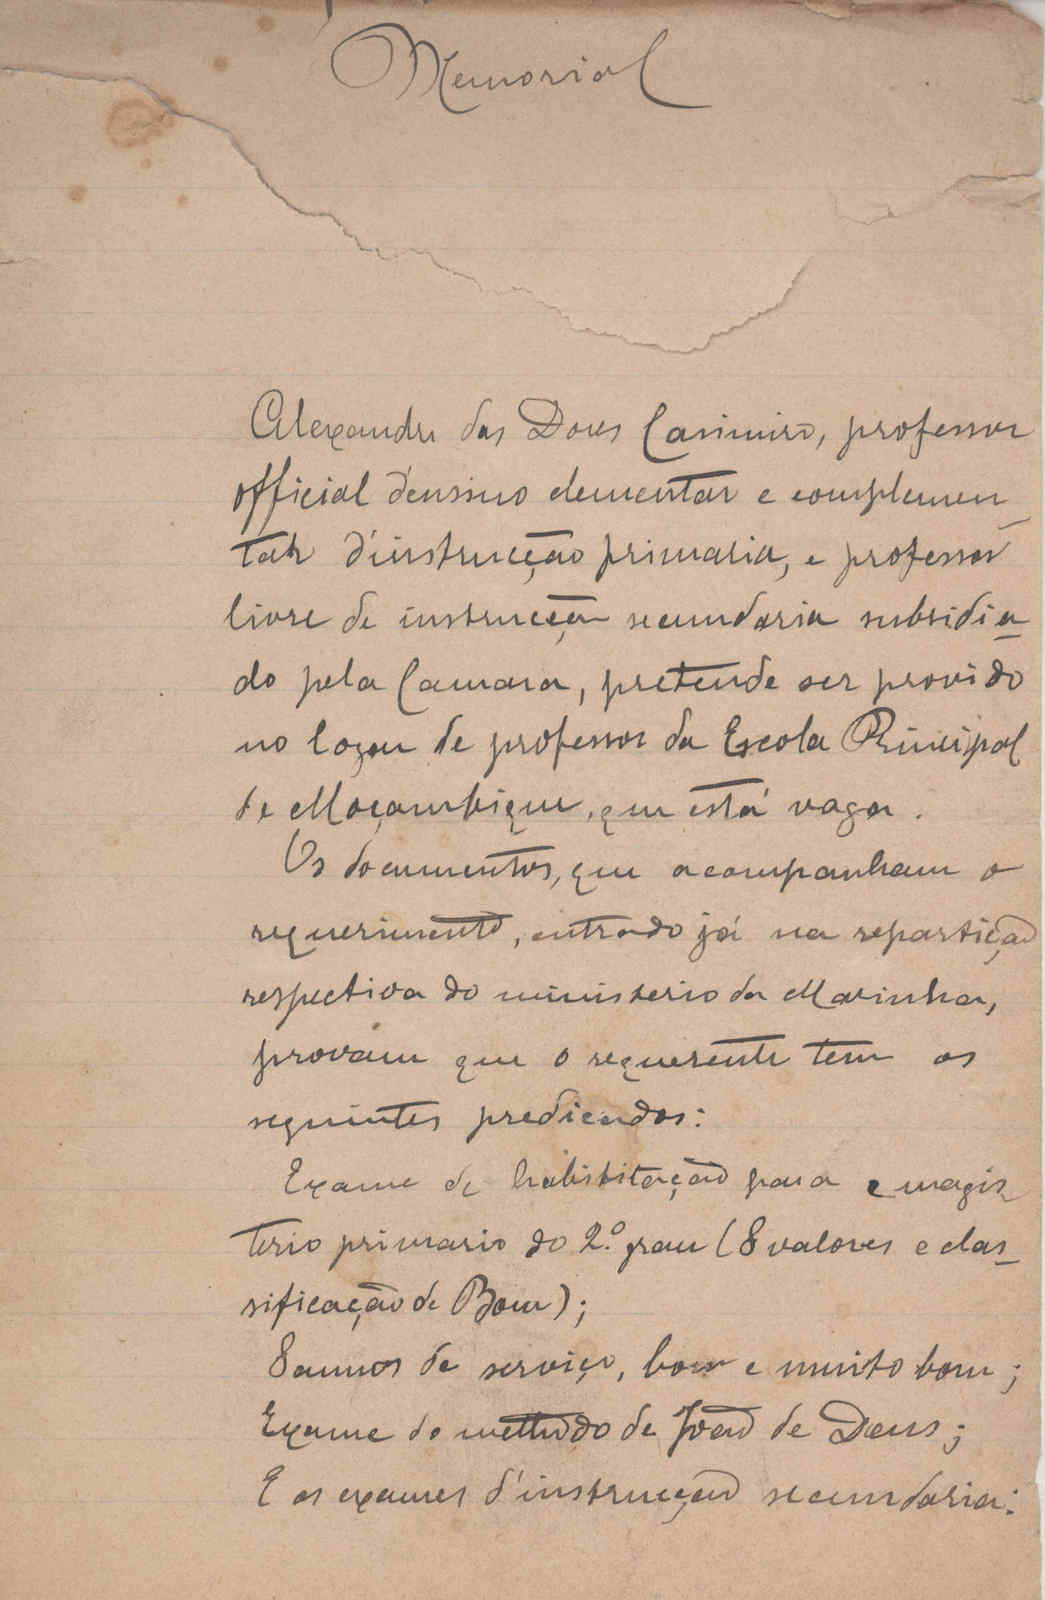 Memorial
Alexandre das Dores Casimiro, professor
official d'ensino elementar e complemen_
tar d'instrucção primaria, e professor
livre de instrucção secundaria subsidia_
do pela Camara, pretende ser provido
no logar de professor da Escola Principal
de Moçambique, que está vaga.
Os documentos, que acompanham o
requerimento, entrado já na repartição
respectiva do ministerio da Marinha,
provam que o requerente tem os
seguintes predicados:
Exame de habilitação para o magis_
terio primario do 2.º grau (8 valores e clas_
sificação de Bom);
8 annos de serviço, bom e muito bom;
Exame do methodo de João de Deus;
E os exames d'instrucção secundaria: